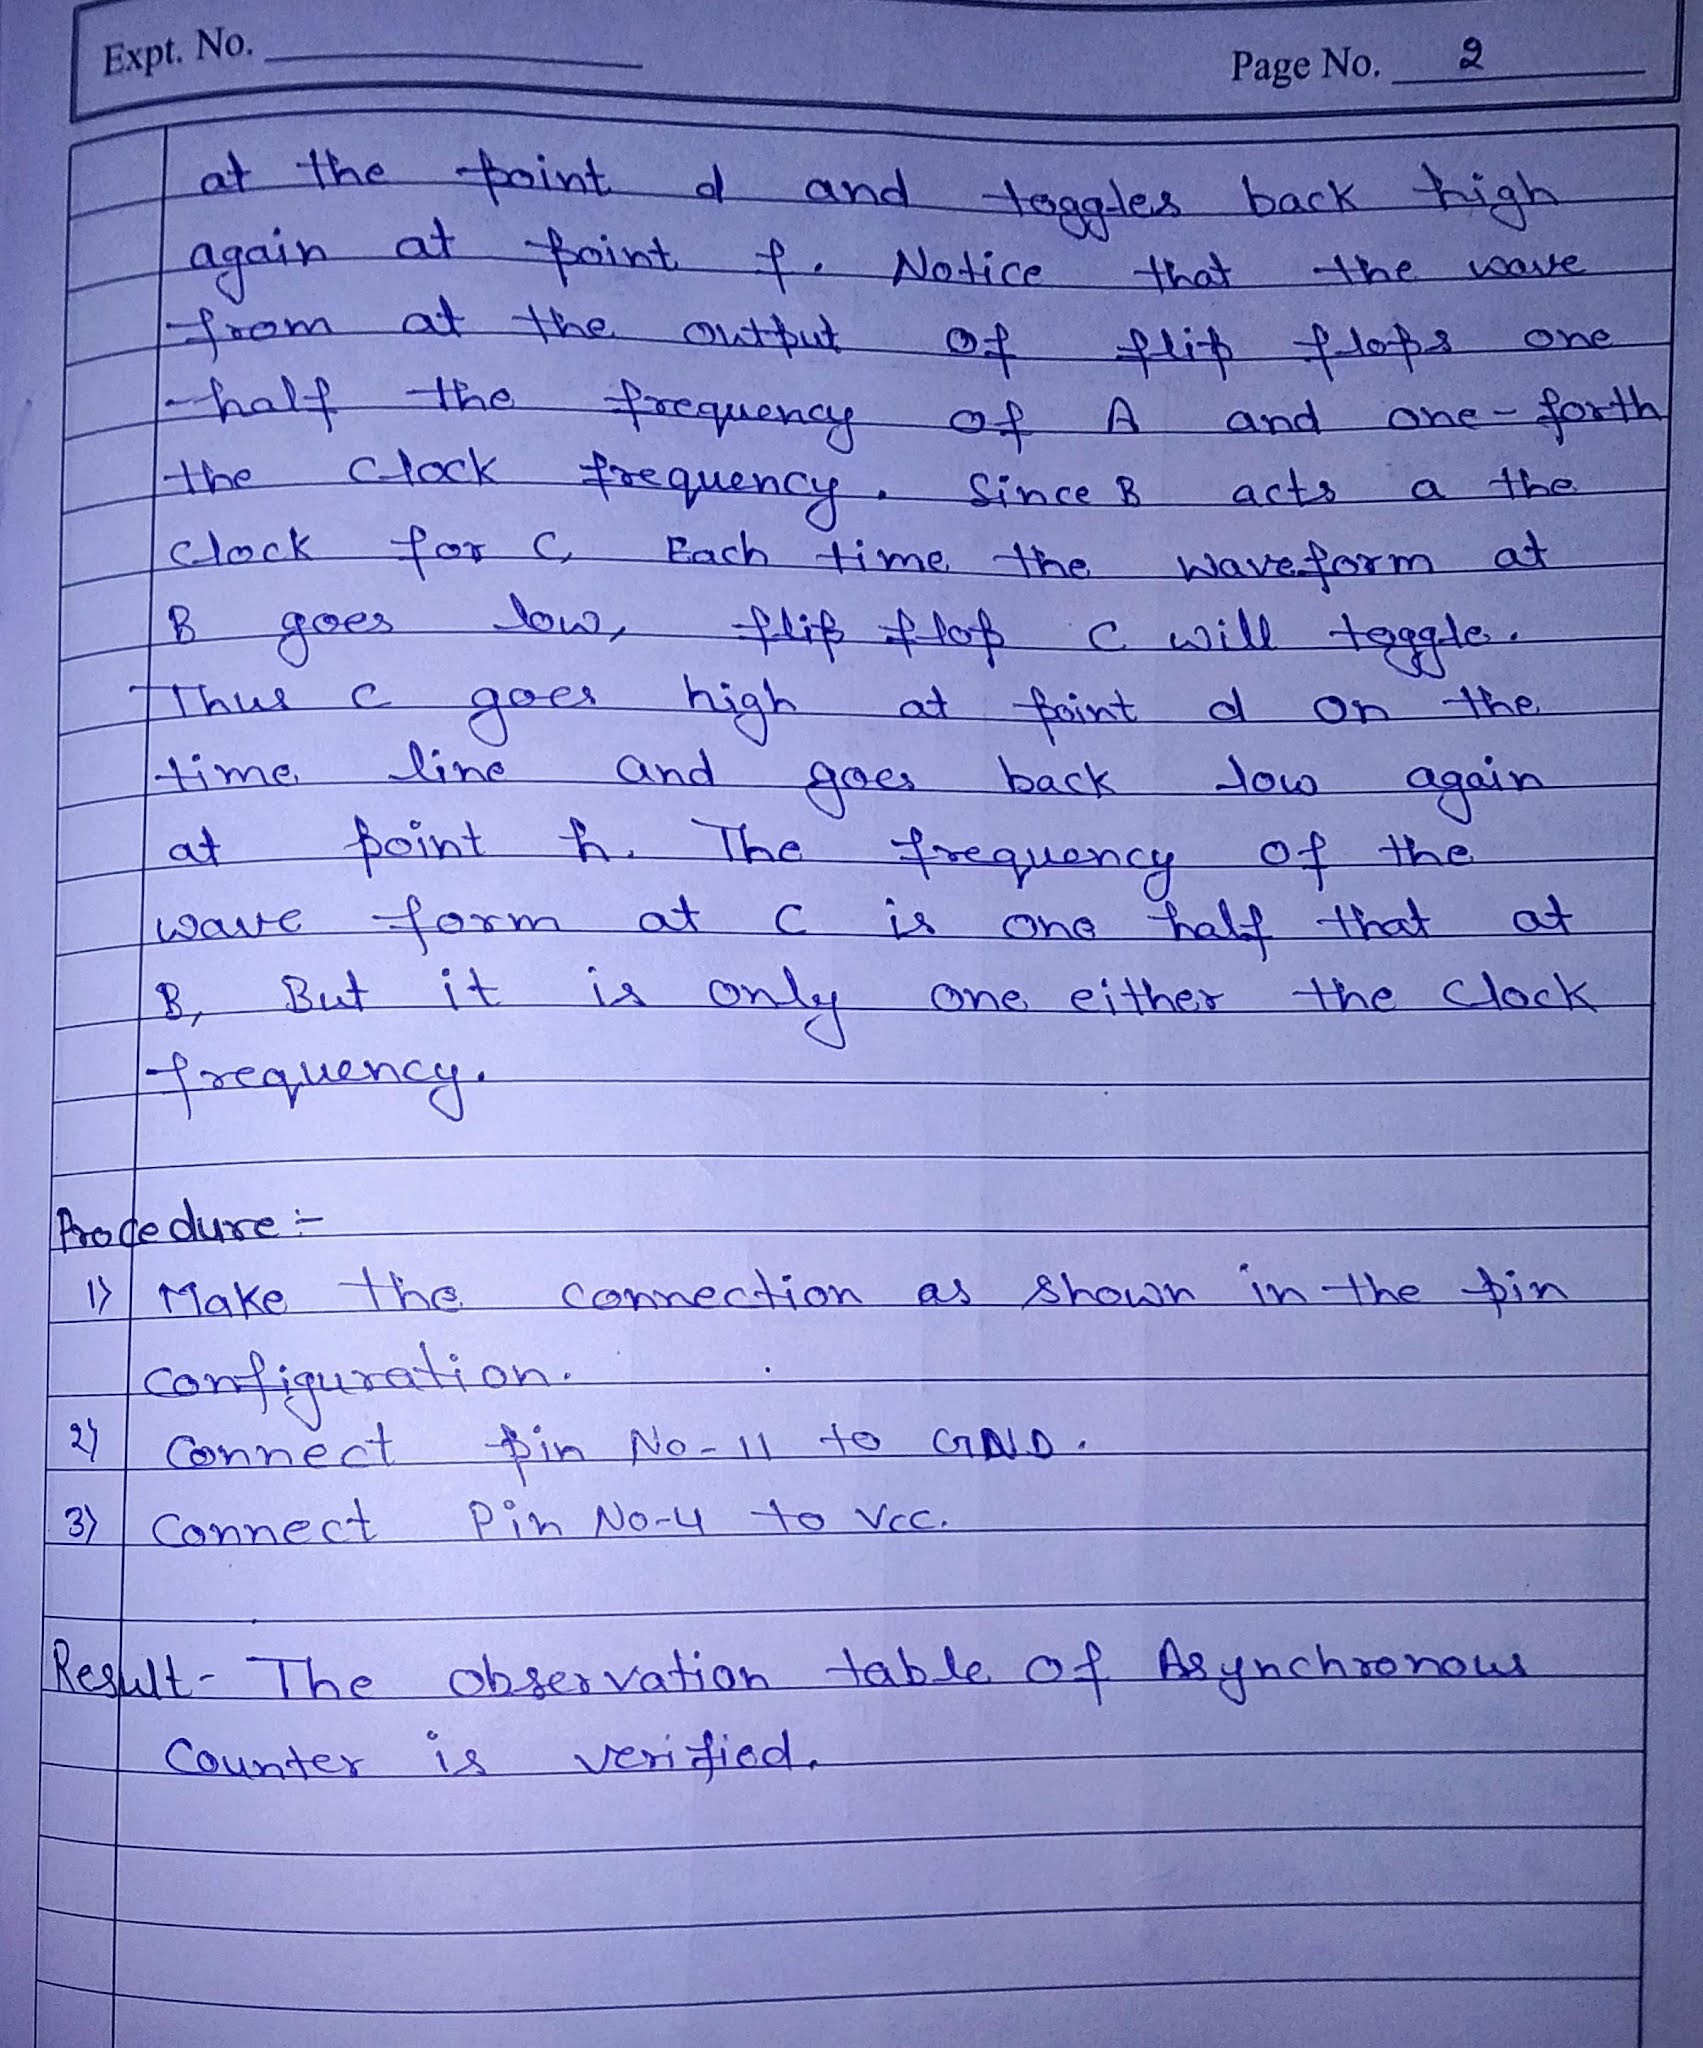 Expt. No.
Page No. 2
at the point d and toggles back high
again at point f. Notice that the wave
from at the output of flip flops one
half the frequency of A and one-forth
the clock frequency. Since B acts a the
clock for C, Each time the waveform at
B goes low, flip flop C will toggle.
Thus C goes high at point d on the
time line and goes back low again
at point h. The frequency of the
wave form at C is one half that at
B, But it is only one either the clock
frequency.
Procedure :-
1) Make the connection as shown in the pin
configuration.
2) Connect pin No-11 to GND.
3) Connect Pin No-4 to Vcc.
Result- The observation table of Asynchronous
Counter is verified.